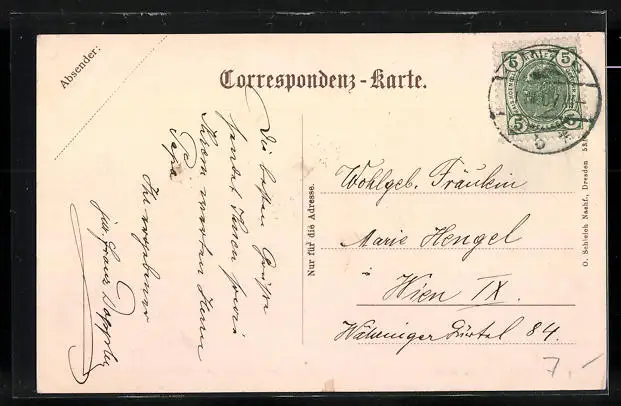 Absender:
Correspondenz-Karte.
Die besten Grüße
sendet Ihnen sowie
Ihrem werten Herrn
Papa
Ihr ergebener
Franz
Nur für die Adresse.
Wohlgeb. Fräulein
Marie Hengel
Wien IX.
Währinger Gürtel 84.
O. Schleich Nachf., Dresden
5 5
5
7.-